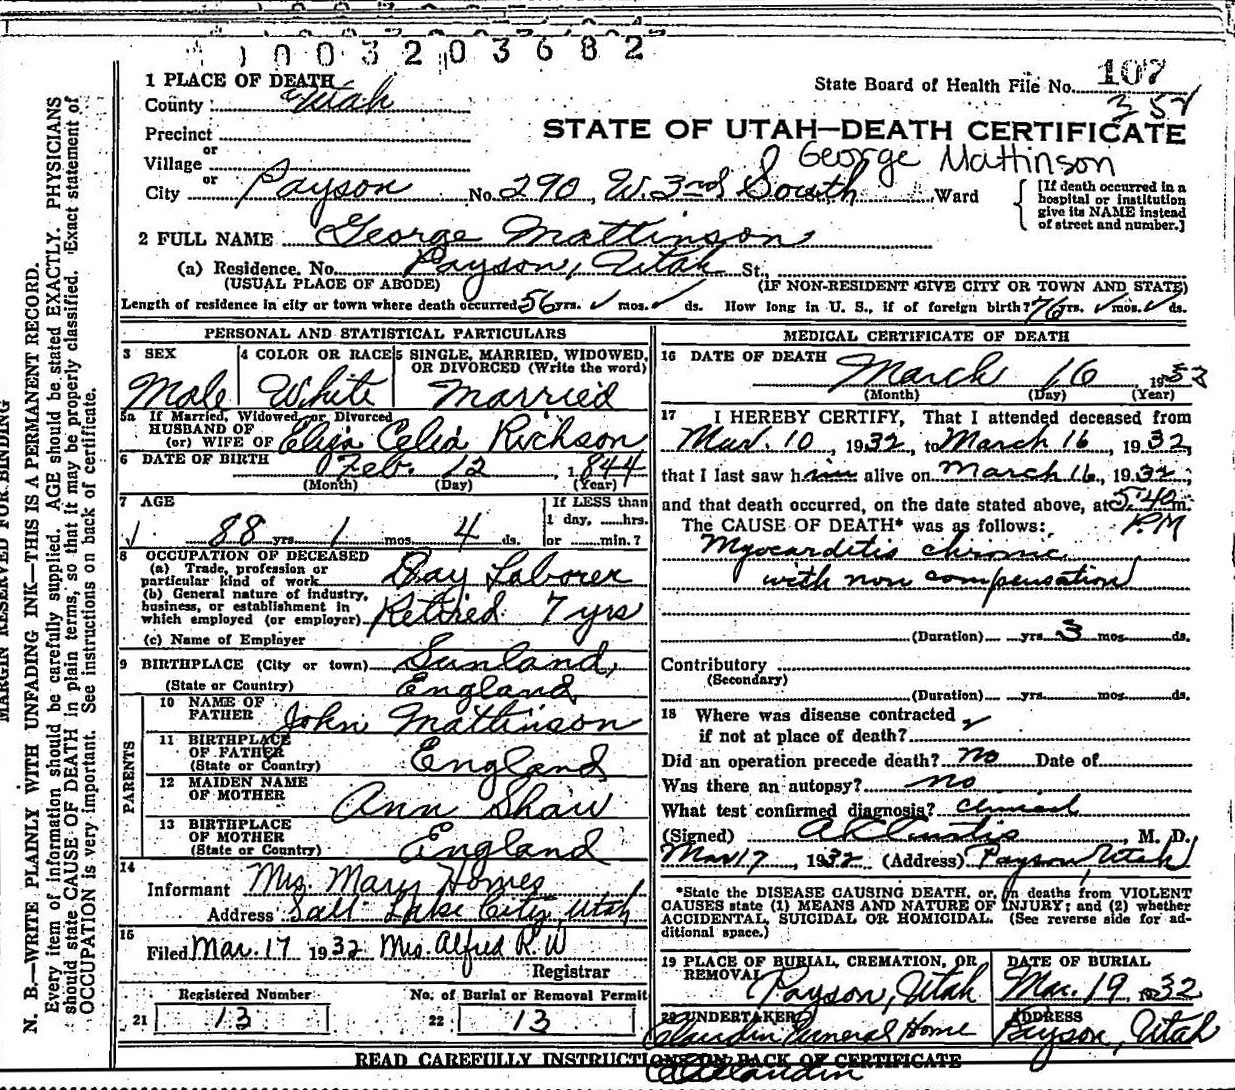 1003203682
1 PLACE OF DEATH
State Board of Health File No. 107
County Utah
352
Precinct
STATE OF UTAH—DEATH CERTIFICATE
or
Village
George Mattinson
or
City Payson No. 290, W. 3rd South Ward
[If death occurred in a
hospital or institution
give its NAME instead
of street and number.]
2 FULL NAME George Mattinson
(a) Residence. No. Payson, Utah St.,
(USUAL PLACE OF ABODE) (IF NON-RESIDENT GIVE CITY OR TOWN AND STATE)
Length of residence in city or town where death occurred 56 yrs. ✓ mos. ✓ ds. How long in U. S., if of foreign birth? 76 yrs. ✓ mos. ✓ ds.
PERSONAL AND STATISTICAL PARTICULARS
3 SEX
Male
4 COLOR OR RACE
White
5 SINGLE, MARRIED, WIDOWED,
OR DIVORCED (Write the word)
Married
5a If Married, Widowed, or Divorced
HUSBAND OF
(or) WIFE OF Eliza Celia Richson
6 DATE OF BIRTH Feb. 12 1844
(Month) (Day) (Year)
7 AGE
If LESS than
1 day, ......hrs.
✓ 88 yrs. 1 mos. 4 ds. or ......min.?
8 OCCUPATION OF DECEASED
(a) Trade, profession or
particular kind of work Day Laborer
(b) General nature of industry,
business, or establishment in
which employed (or employer) Retired 7 yrs
(c) Name of Employer
9 BIRTHPLACE (City or town) Sunland,
(State or Country) England
PARENTS
10 NAME OF
FATHER John Mattinson
11 BIRTHPLACE
OF FATHER
(State or Country) England
12 MAIDEN NAME
OF MOTHER Ann Shaw
13 BIRTHPLACE
OF MOTHER
(State or Country) England
14
Informant Mrs. Mary Homes
Address Salt Lake City, Utah
15
Filed Mar. 17 1932 Mrs. Alfred R. W
Registrar
Registered Number No. of Burial or Removal Permit
21 13 22 13
MEDICAL CERTIFICATE OF DEATH
16 DATE OF DEATH March 16, 1932
(Month) (Day) (Year)
17 I HEREBY CERTIFY, That I attended deceased from
Mar. 10, 1932, to March 16, 1932,
that I last saw him alive on March 16, 1932;
and that death occurred, on the date stated above, at 5:40 m.
P.M
The CAUSE OF DEATH* was as follows:
Myocarditis chronic
with non compensation
(Duration) yrs. 3 mos. ds.
Contributory
(Secondary)
(Duration) yrs. mos. ds.
18 Where was disease contracted
if not at place of death?
Did an operation precede death? no Date of
Was there an autopsy? no
What test confirmed diagnosis? clinical
(Signed) A L Curtis M. D.
Mar 17, 1932 (Address) Payson, Utah
*State the DISEASE CAUSING DEATH, or, in deaths from VIOLENT
CAUSES state (1) MEANS AND NATURE OF INJURY; and (2) whether
ACCIDENTAL, SUICIDAL OR HOMICIDAL. (See reverse side for ad-
ditional space.)
19 PLACE OF BURIAL, CREMATION, OR
REMOVAL
Payson, Utah
DATE OF BURIAL
Mar. 19 1932
20 UNDERTAKER
Claudin Funeral Home
ADDRESS
Payson, Utah
READ CAREFULLY INSTRUCTIONS ON BACK OF CERTIFICATE
MARGIN RESERVED FOR BINDING
N. B.—WRITE PLAINLY WITH UNFADING INK—THIS IS A PERMANENT RECORD.
Every item of information should be carefully supplied. AGE should be stated EXACTLY. PHYSICIANS
should state CAUSE OF DEATH in plain terms, so that it may be properly classified. Exact statement of
OCCUPATION is very important. See instructions on back of certificate.